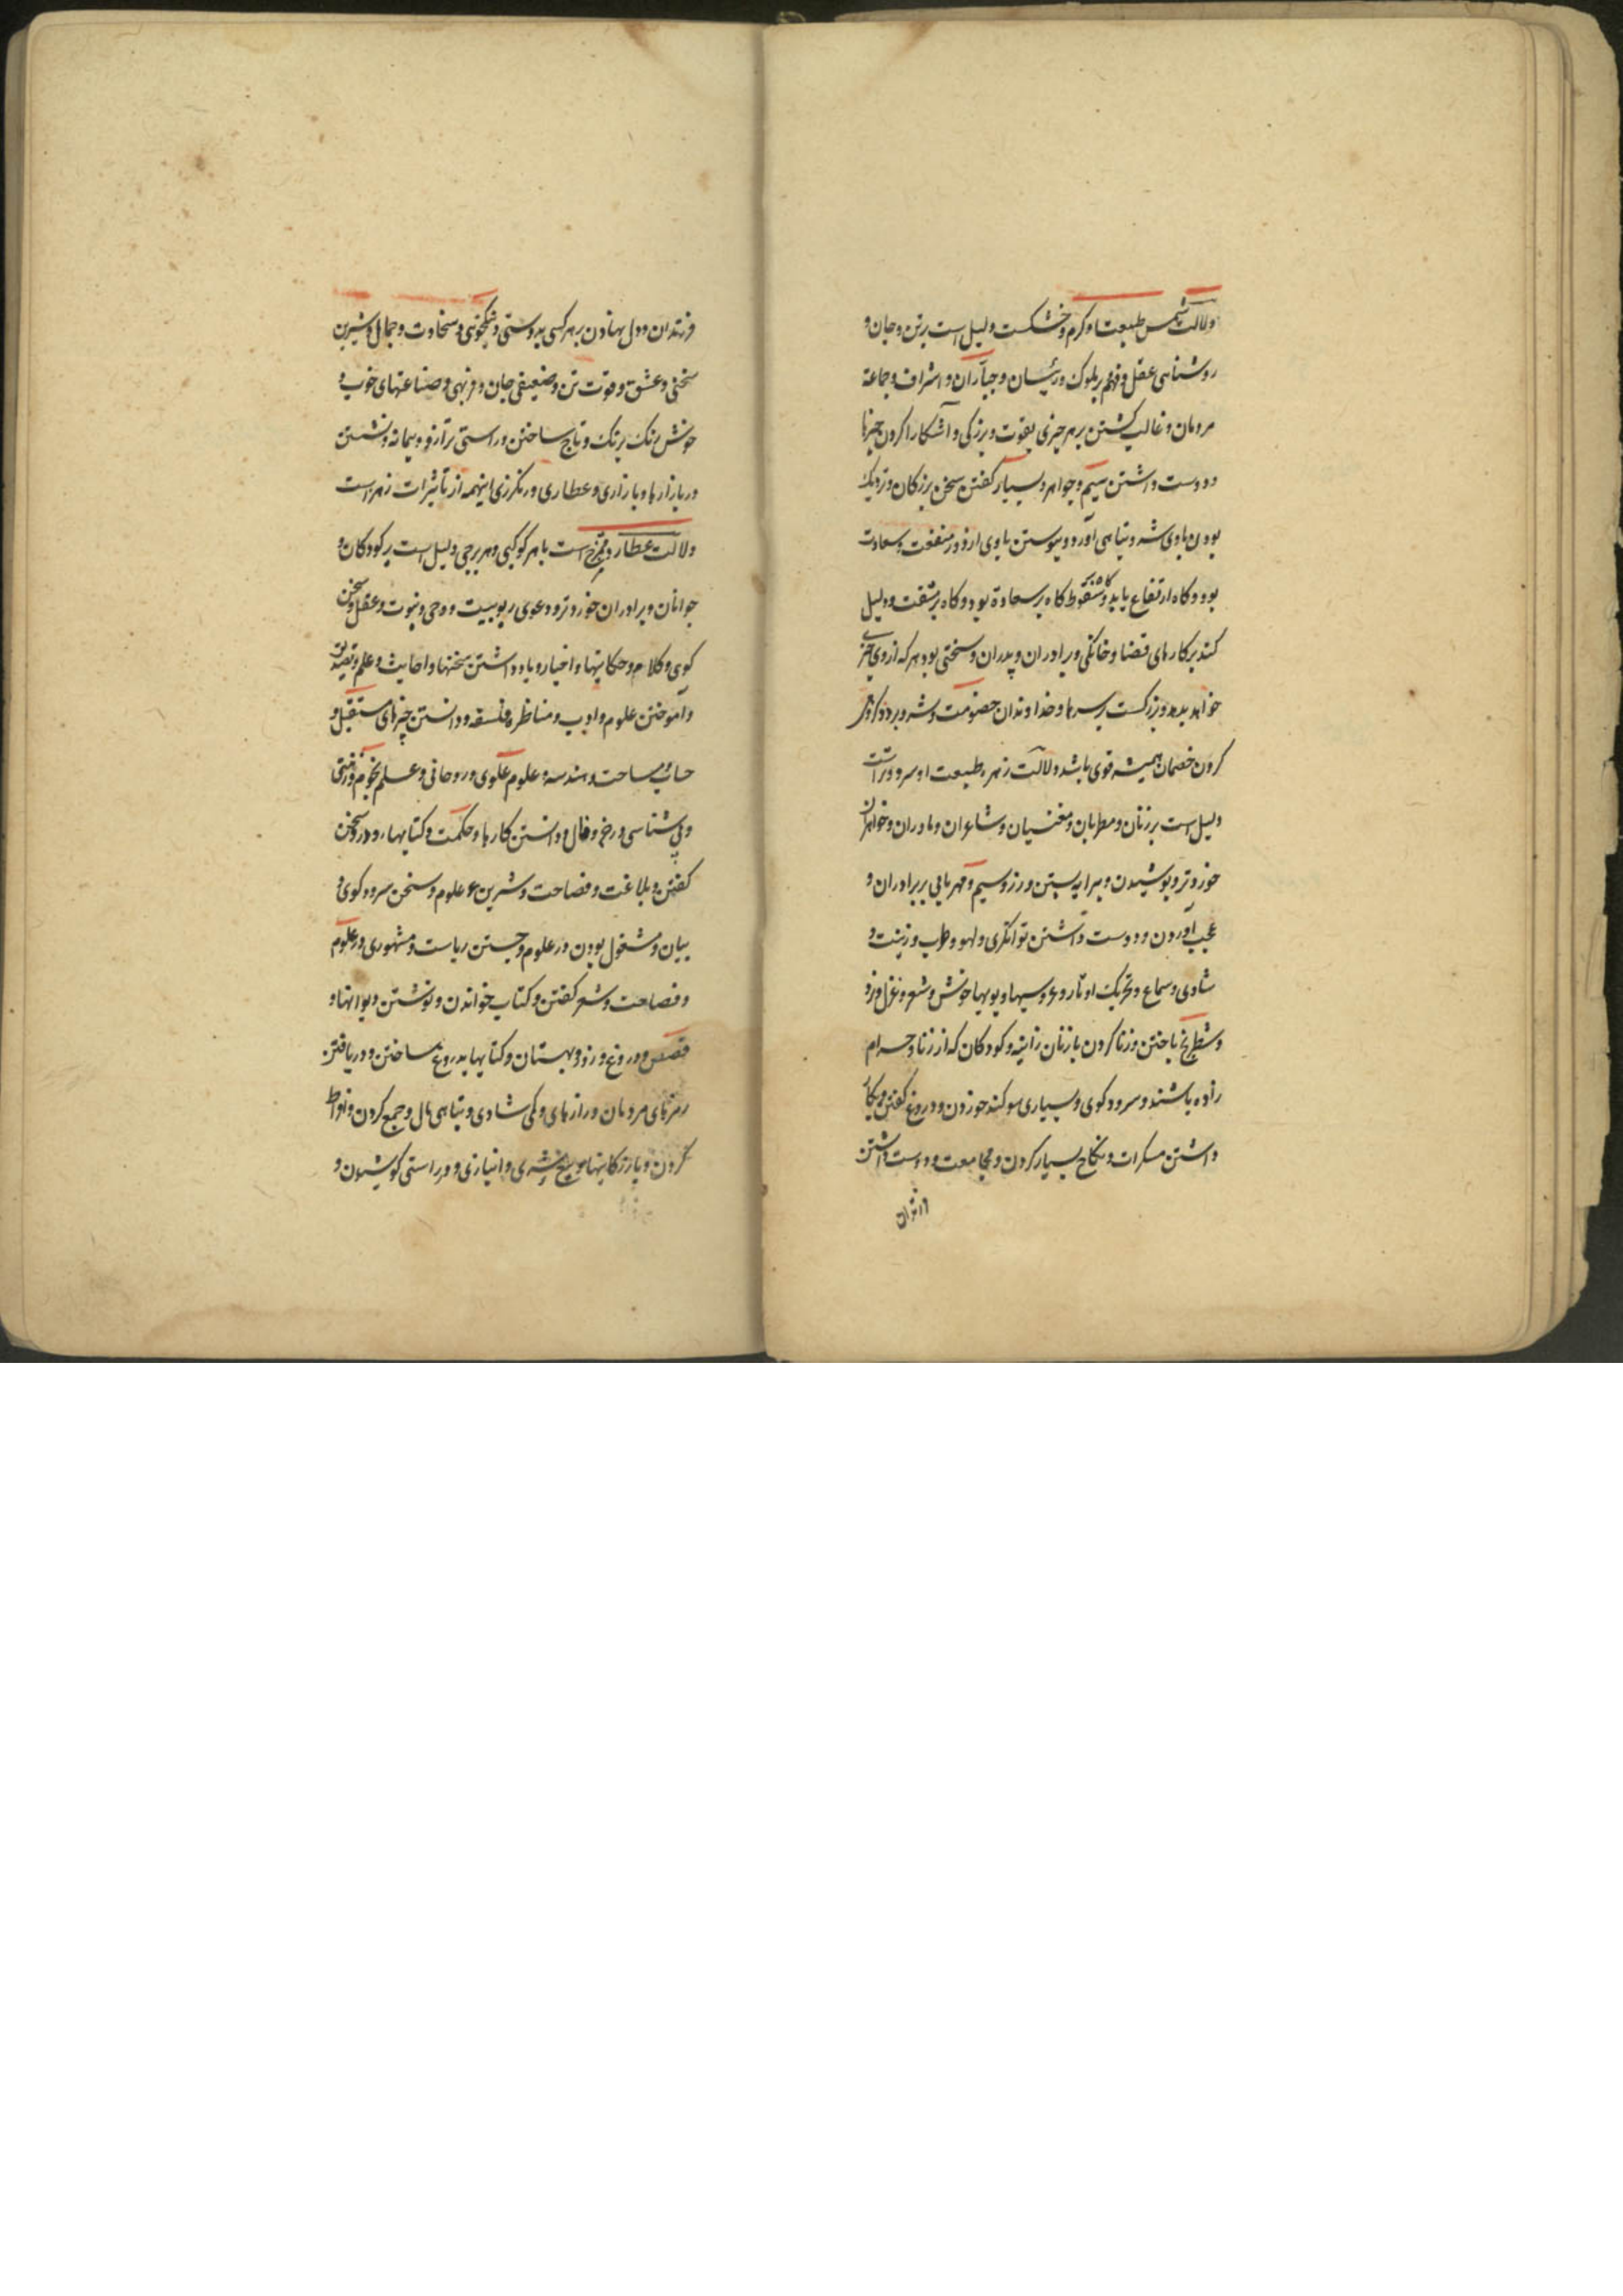 دلالت شمس طبیعت او کرم و خشکست دلیل است برتن و جان و
روشنایی عقل و فهم بر ملوک و رئیسان و جباران و اشراف و جماعة
مردمان و غالب کشتن بر هر چیزی بقوت و بزرکی و آشکارا کردن چیزها
و دوست داشتن سیم و جواهر و بسیار کفتن سخن بزرکان و نزدیک
بودن باوی شر و تباهی آورد و پیوستن باوی از دور منفعت و سعادت
بود و کاه ارتفاع یابد و کاه سقوط کاه بر سعادة بود و کاه بر مشقت و دلیل
کند بر کارهای قضا و خانکی و برادران و پدران و سختی بود هر که از وی چیزی
خواهد بدهد و بزرکست بر سرها و خداوندان خصومت و شر و بر
کردن خصمان همیشه قوی باشد دلالت زهره طبیعت او سرد و تراست
دلیل است بر زنان و مطربان و مغنیان و شاعران و مادران و خواهران
خورد تر و پوشیدن و پیرایه بستن و زر و سیم و مهربانی بر برادران و
عجب آوردن و دوست داشتن توانکری و لهو و طرب و زینت و
شادی و سماع و تحریک اوتار و عروسیها و بویها خوش و شعر و غزل و نرد
و شطرنج باختن و زنا کردن با زنان زانیه و کودکان که از زنا و حرام
زاده باشند و سرود کوی و بسیاری سوکند خوردن و دروغ کفتن و بکار
داشتن مسکرات و نکاح بسیار کردن و مجامعت و دوست داشتن
فرزندان و دل نهادن بر هر کسی بدوستی و نیکخویی و سخاوت و جمال و شیرین
سخنی و عشق و قوت تن و ضعیفی جان و فربهی و صناعتهای خوب و
خوش رنک برنک و تاج ساختن و راستی ترازو و پیمانه و نشستن
در بازارها و بازاری و عطاری و رنکرزی اینهمه از تأثیرات زهره است
دلالت عطارد ممتزج است با هر کوکبی و هر برجی دلیل است بر کودکان و
جوانان و برادران خورد تر و دعوی ربوبیت و وحی و نبوت و عقل و سخن
کوی و کلام و حکایتها و اخبار و یاد داشتن سخنها و احادیث و علم و تصدیق
و آموختن علوم و ادب و مناظره و فلسفه و دانستن چیزهای مستقبل و
حساب و مساحت و هندسه و علوم علوی و روحانی و علم نجوم و زمینی
و پی شناسی و زخر و فال و دانستن کارها و حکمت و کتابها و در سخن
کفتن و بلاغت و فصاحت و شیرین علوم و سخن سرود کوی و
بیان و مشغول بودن در علوم و جستن ریاست و مشهوری در علوم
و فصاحت و شعر کفتن و کتاب خواندن و نوشتن دیوانها و
قصص و دروغ و زور و بهتان و کتابها بدروغ ساختن و دریافتن
رمزهای مردمان و رازهای و کمی شادی و تباهی مال و جمع کردن و افراط
کردن و بازرکانیها و بیخ شری و انبازی و در راستی کوشیدن و